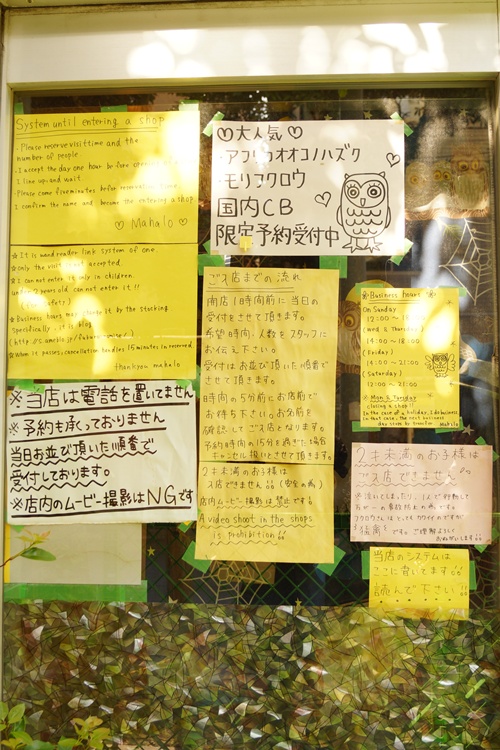 System until entering a shop
· Please reserve visit time and the
number of people.
· I accept the day one hour before
I line up and wait.
· Please come five minutes before
I confirm the name and become the entering a shop
♡ Mahalo ♡
☆ It is
system of one
☆ only the
not accepted.
☆ I can not enter it only in children.
under 2 years old can not enter it!!
(for safety)
☆ Business hours may
by the stocking
Specifically, it is blog
☆ When it passes, cancellation handles 15 minutes in reserved
thank you mahalo
※当店は電話を置いてません
※予約も承っておりません
当日お並び頂いた順番で
受付しております。
※店内のムービー撮影はNGです
♡大人気♡
·アフリカオオコノハズク
·モリフクロウ
国内CB
限定予約受付中
ご入店までの流れ
開店1時間前に当日の
受付をさせて頂きます。
希望時間・人数をスタッフに
お伝え下さい。
受付はお並び頂いた順番で
させて頂きます。
時間の5分前にお店前で
お待ち下さい。お名前を
確認してご入店となります。
予約時間の15分を過ぎた場合
キャンセル扱いとさせて頂きます
2才未満のお子様は
入店できません (安全の為)
店内ムービー撮影は禁止です
A video shoot in the shops
is prohibition
※ Business hours ※
On Sunday
12:00 ~ 18:00
(Wed & Thursday)
14:00 ~ 18:00
(Friday)
14:00 ~ 21:00
(Saturday)
12:00 ~ 21:00
※ Mon & Tuesday
closing a shop!!
In the case of a holiday, I do business
in that case, the next business
day
Mahalo
2才未満のお子様は
ご入店できません
※泣いてしまったり、1人で行動して
万が一の事故防止の為です。
フクロウさんはとってもカワイイのですが
"猛禽"です。ご理解よろしく
おねがいします
当店のシステムは
ここに書いてます
読んで下さい